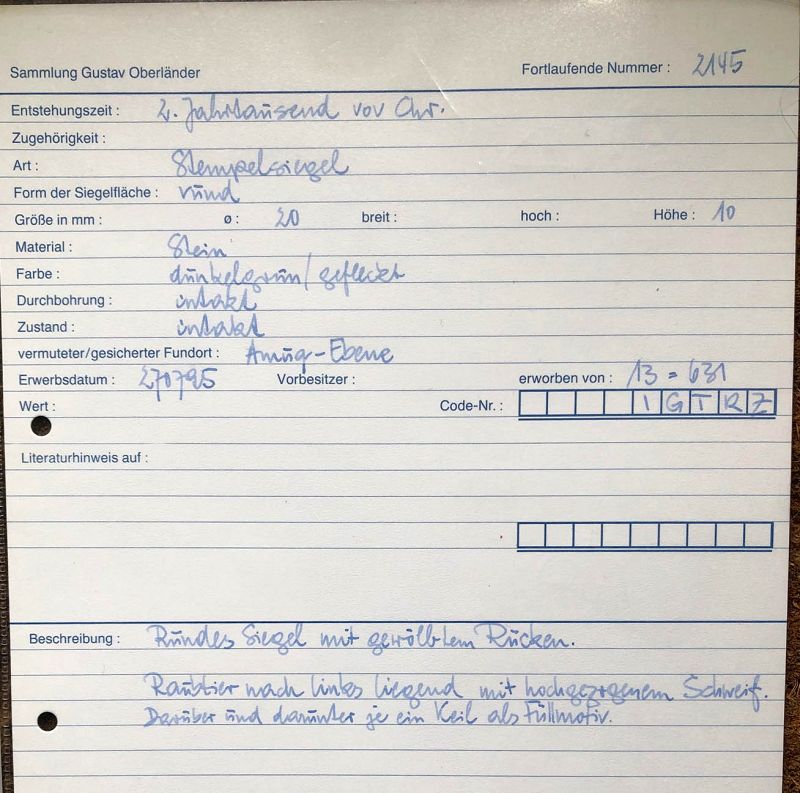 Sammlung Gustav Oberländer Fortlaufende Nummer : 2145
Entstehungszeit : 2. Jahrtausend vor Chr.
Zugehörigkeit :
Art : Stempelsiegel
Form der Siegelfläche : rund
Größe in mm : ø : 20 breit : hoch : Höhe : 10
Material : Stein
Farbe : dunkelgrün / gefleckt
Durchbohrung : intakt
Zustand : intakt
vermuteter/gesicherter Fundort : Amuq-Ebene
Erwerbsdatum : 270795 Vorbesitzer : erworben von : 13 = 631
Wert : Code-Nr. : I G T R Z
Literaturhinweis auf :
Beschreibung : Rundes Siegel mit gewölbtem Rücken.
Raubtier nach links liegend mit hochgezogenem Schweif.
Darüber und darunter je ein Keil als Füllmotiv.